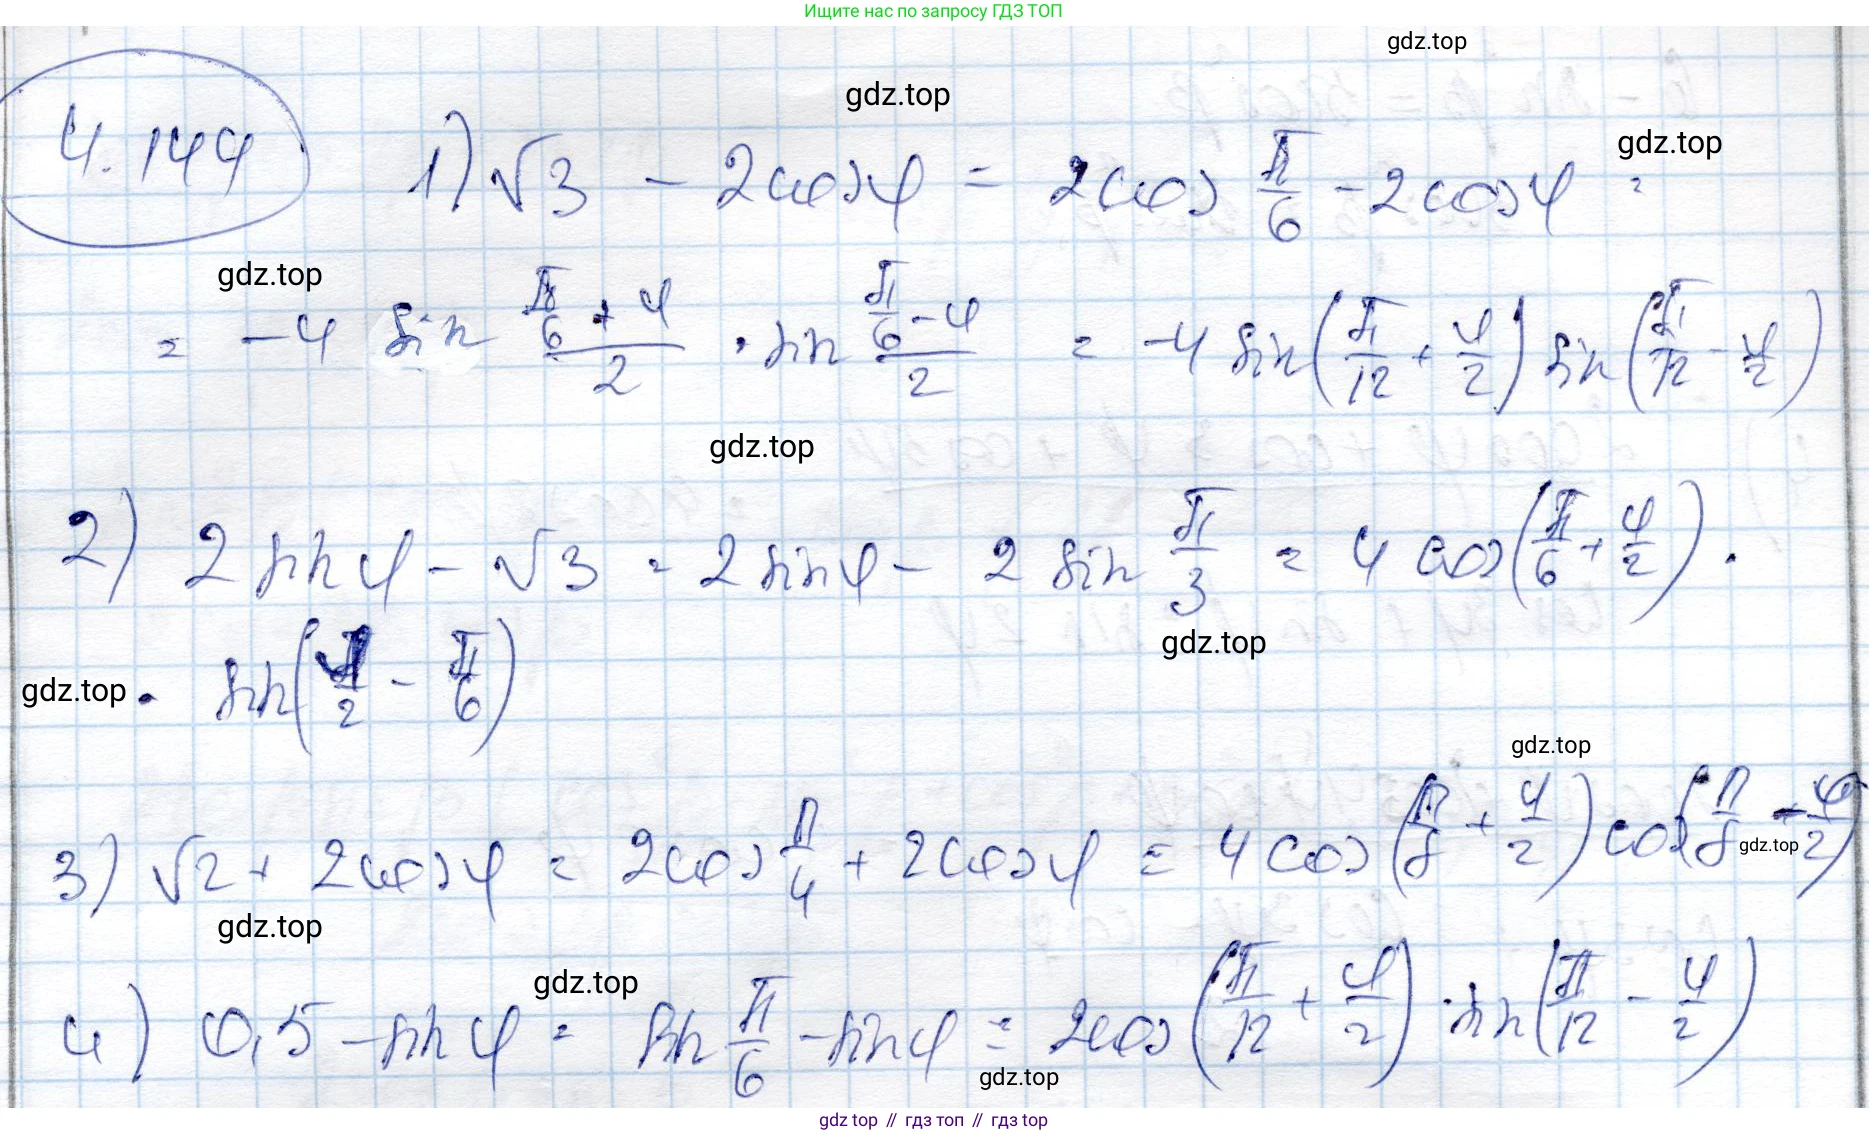 Ищите нас по запросу ГДЗ ТОП
gdz.top
gdz.top
4.144 1) √3 - 2cosφ = 2cos π/6 - 2cosφ =
gdz.top
gdz.top
= -4 sin (π/6 + φ)/2 · sin (π/6 - φ)/2 = -4 sin(π/12 + φ/2) sin(π/12 - φ/2)
gdz.top
2) 2sinφ - √3 = 2sinφ - 2 sin π/3 = 4 cos(π/6 + φ/2) ·
gdz.top
gdz.top
· sin(φ/2 - π/6)
gdz.top
3) √2 + 2cosφ = 2cos π/4 + 2cosφ = 4cos(π/8 + φ/2) cos(π/8 - φ/2)
gdz.top
gdz.top
gdz.top
4) 0,5 - sinφ = sin π/6 - sinφ = 2cos(π/12 + φ/2) · sin(π/12 - φ/2)
gdz.top
gdz.top // гдз топ // гдз top